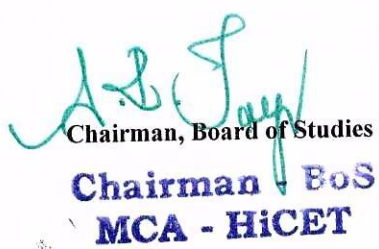 Chairman, Board of Studies
Chairman BoS
MCA - HiCET